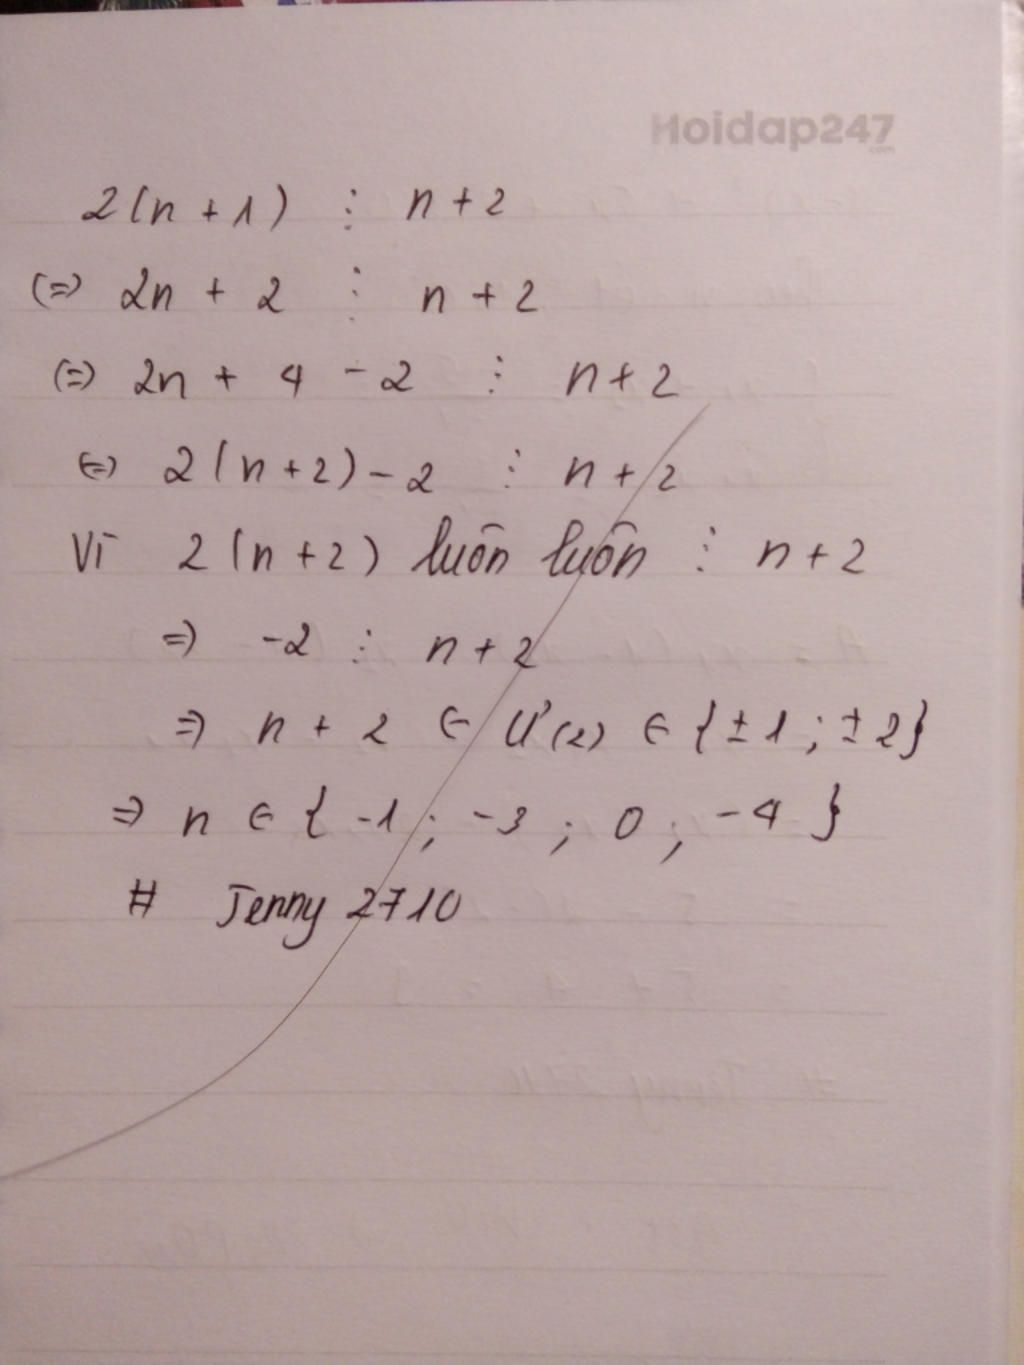 Hoidap247
.com
2(n + 1) ⋮ n + 2
(=) 2n + 2 ⋮ n + 2
(=) 2n + 4 - 2 ⋮ n + 2
(=) 2(n + 2) - 2 ⋮ n + 2
Vì 2(n + 2) luôn luôn ⋮ n + 2
=) -2 ⋮ n + 2
=) n + 2 ∈ Ư(2) ∈ {±1 ; ±2}
=) n ∈ {-1 ; -3 ; 0 ; -4}
# Jenny 2710